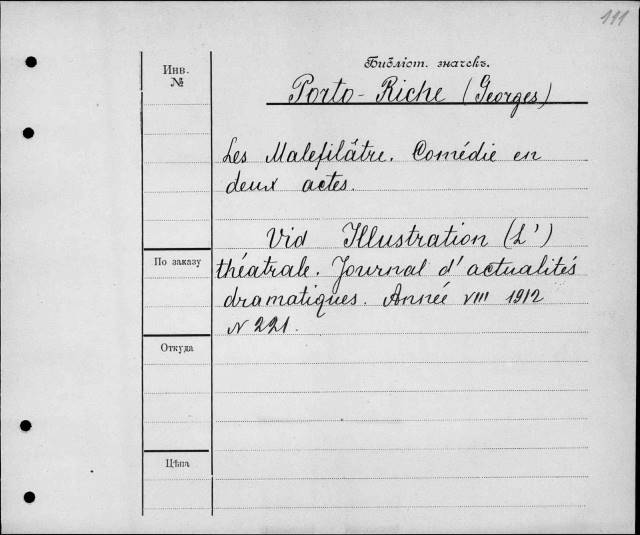 111
Инв.
№
Бібліот. значекъ.
Porto-Riche (Georges)
Les Malefilâtre. Comédie en
deux actes.
Vid Illustration (L')
théatrale. Journal d'actualités
dramatiques. Année VIII 1912
N 221.
По заказу
Откуда
Цѣна